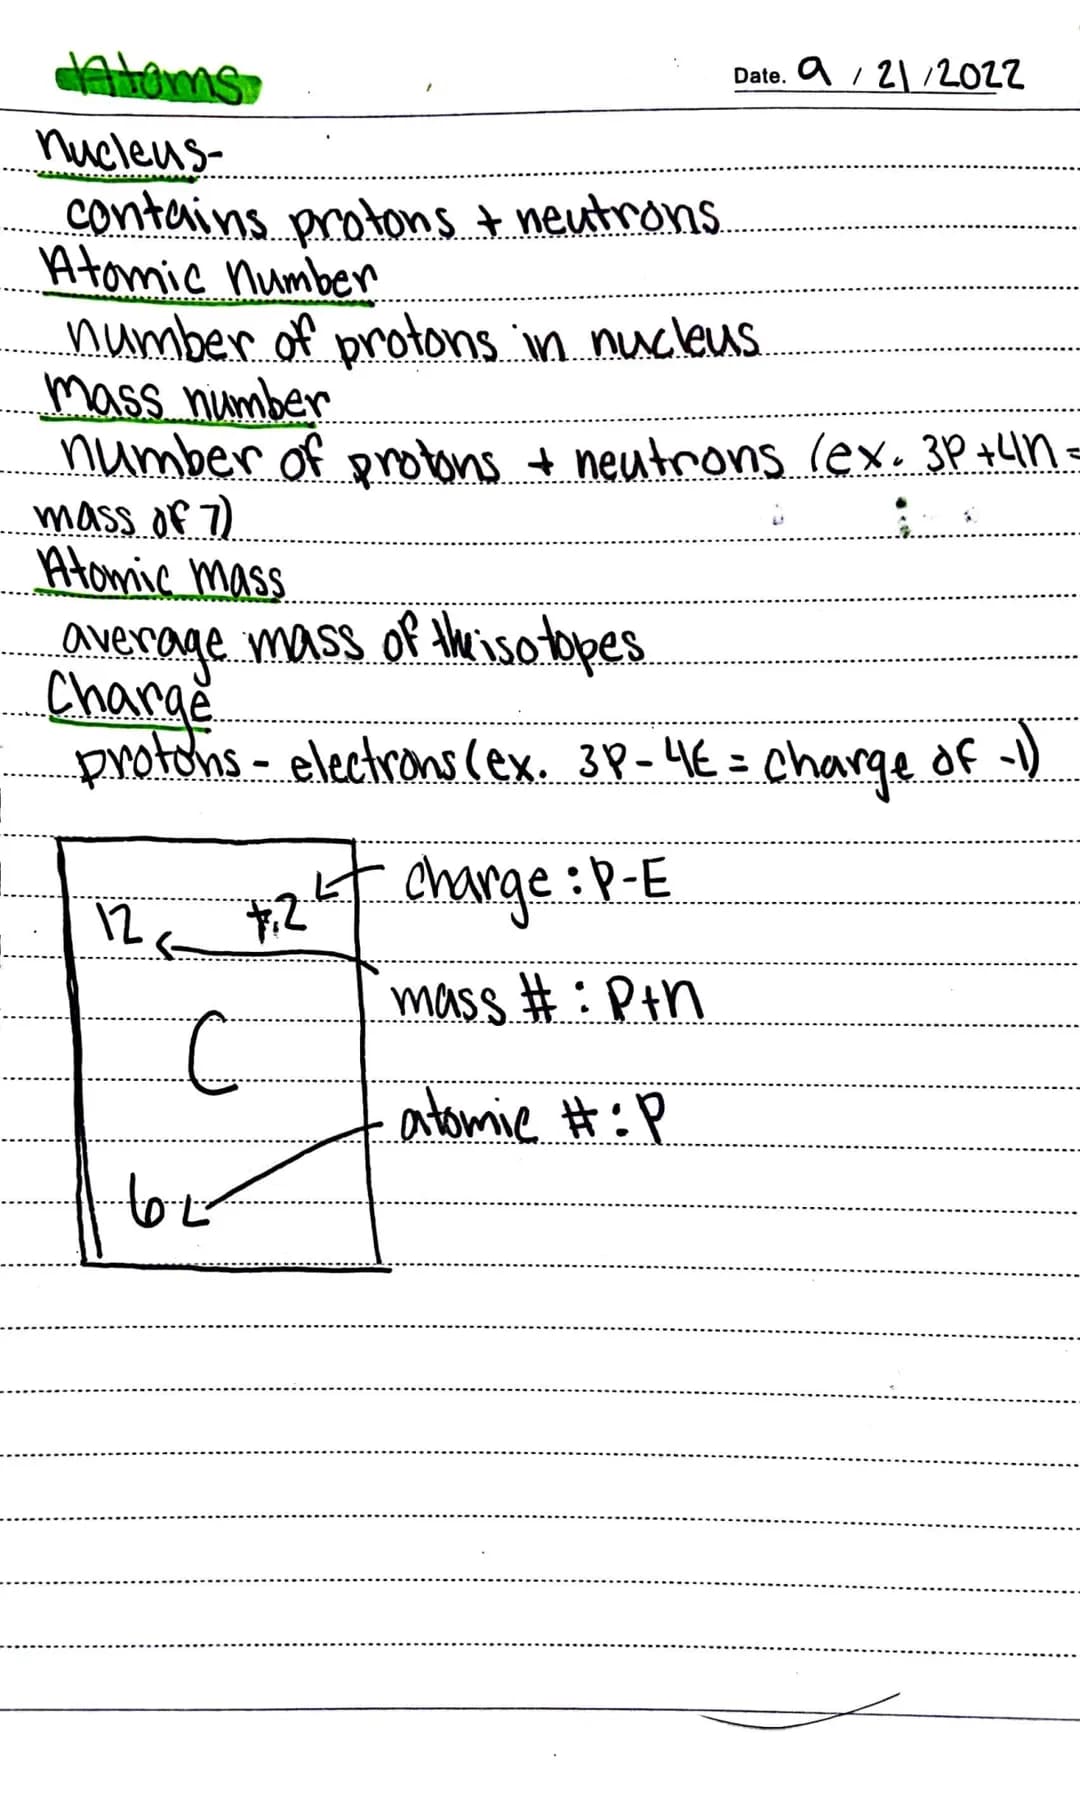 Atoms
Date. 9 / 21 / 2022
nucleus-
contains protons + neutrons
Atomic number
number of protons in nucleus
mass number
number of protons + neutrons (ex. 3P+4n=
mass of 7)
Atomic mass
average mass of the isotopes
Charge
protons - electrons (ex. 3P-4E = charge of -1)
charge : P-E
12 +2
mass # : P+n
C
atomic # : P
6